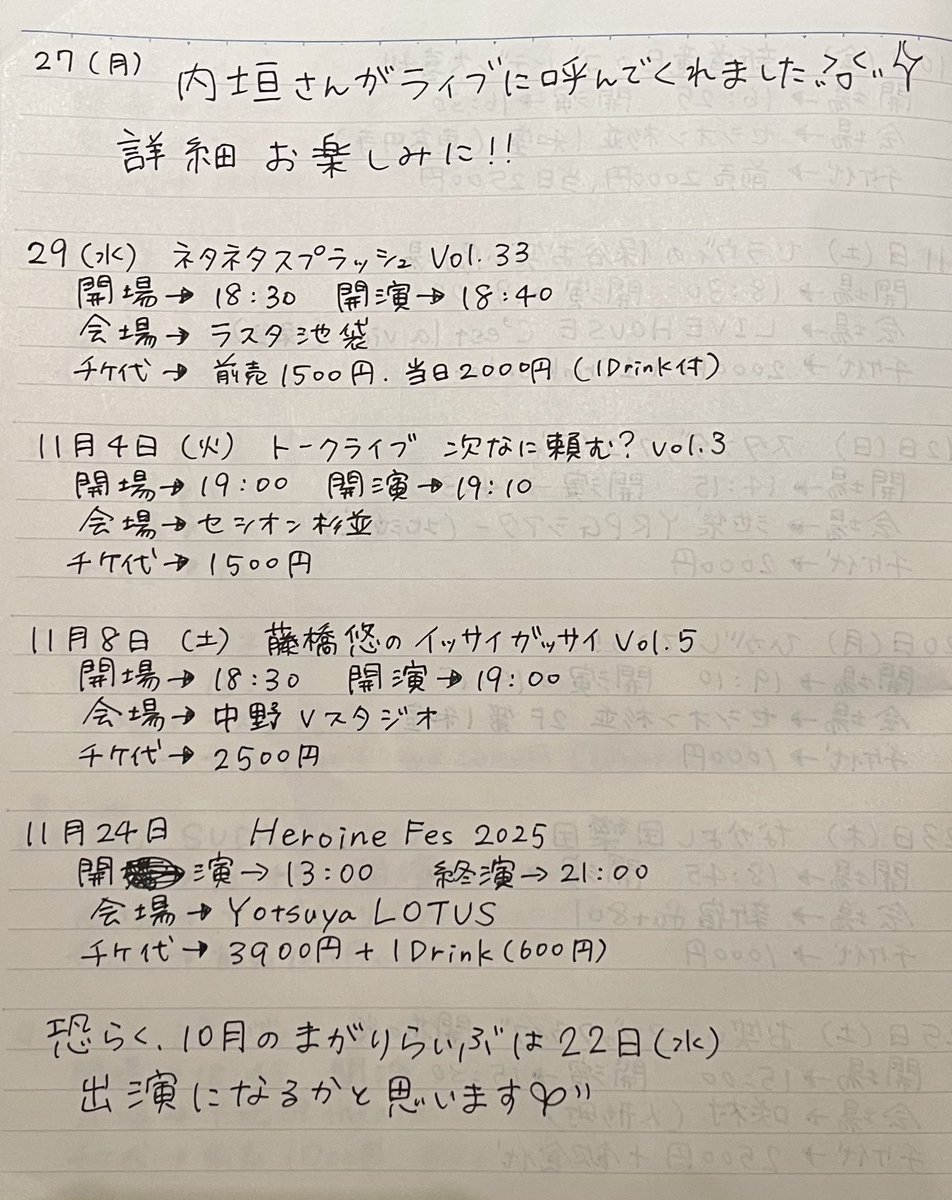 27(月) 内垣さんがライブに呼んでくれました
詳細 お楽しみに!!
29(水) ネタネタスプラッシュ Vol.33
開場→18:30 開演→18:40
会場→ラスタ池袋
チケ代→前売1500円.当日2000円(1Drink付)
11月4日(火) トークライブ 次なに頼む?vol.3
開場→19:00 開演→19:10
会場→セシオン杉並
チケ代→1500円
11月8日(土) 藤橋悠のイッサイガッサイVol.5
開場→18:30 開演→19:00
会場→中野Vスタジオ
チケ代→2500円
11月24日 Heroine Fes 2025
開演→13:00 終演→21:00
会場→Yotsuya LOTUS
チケ代→3900円+1Drink(600円)
恐らく、10月のまがりらいぶは22日(水)
出演になるかと思います